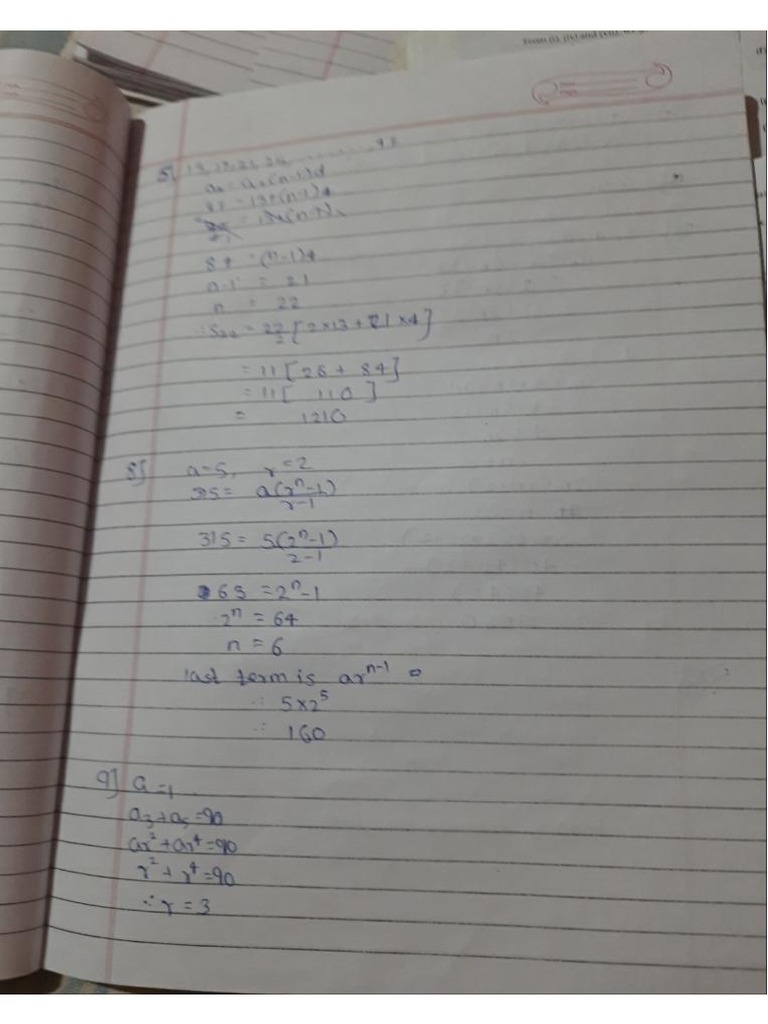 5] 13, 17, 21, 24 ........ 97
an = a + (n-1)d
97 = 13 + (n-1)4
= 13 + (n-1)
84 = (n-1)4
n-1 = 21
n = 22
∴ S22 = 22/2 [2×13 + 21×4]
= 11 [26 + 84]
= 11 [ 110 ]
= 1210
8] a=5, r=2
315 = a(r^n-1)/r-1
315 = 5(2^n-1)/2-1
63 = 2^n-1
2^n = 64
n = 6
last term is ar^n-1
∴ 5×2^5
∴ 160
9] a=1
a3+a5=90
ar^2+ar^4=90
r^2+r^4=90
∴ r = 3